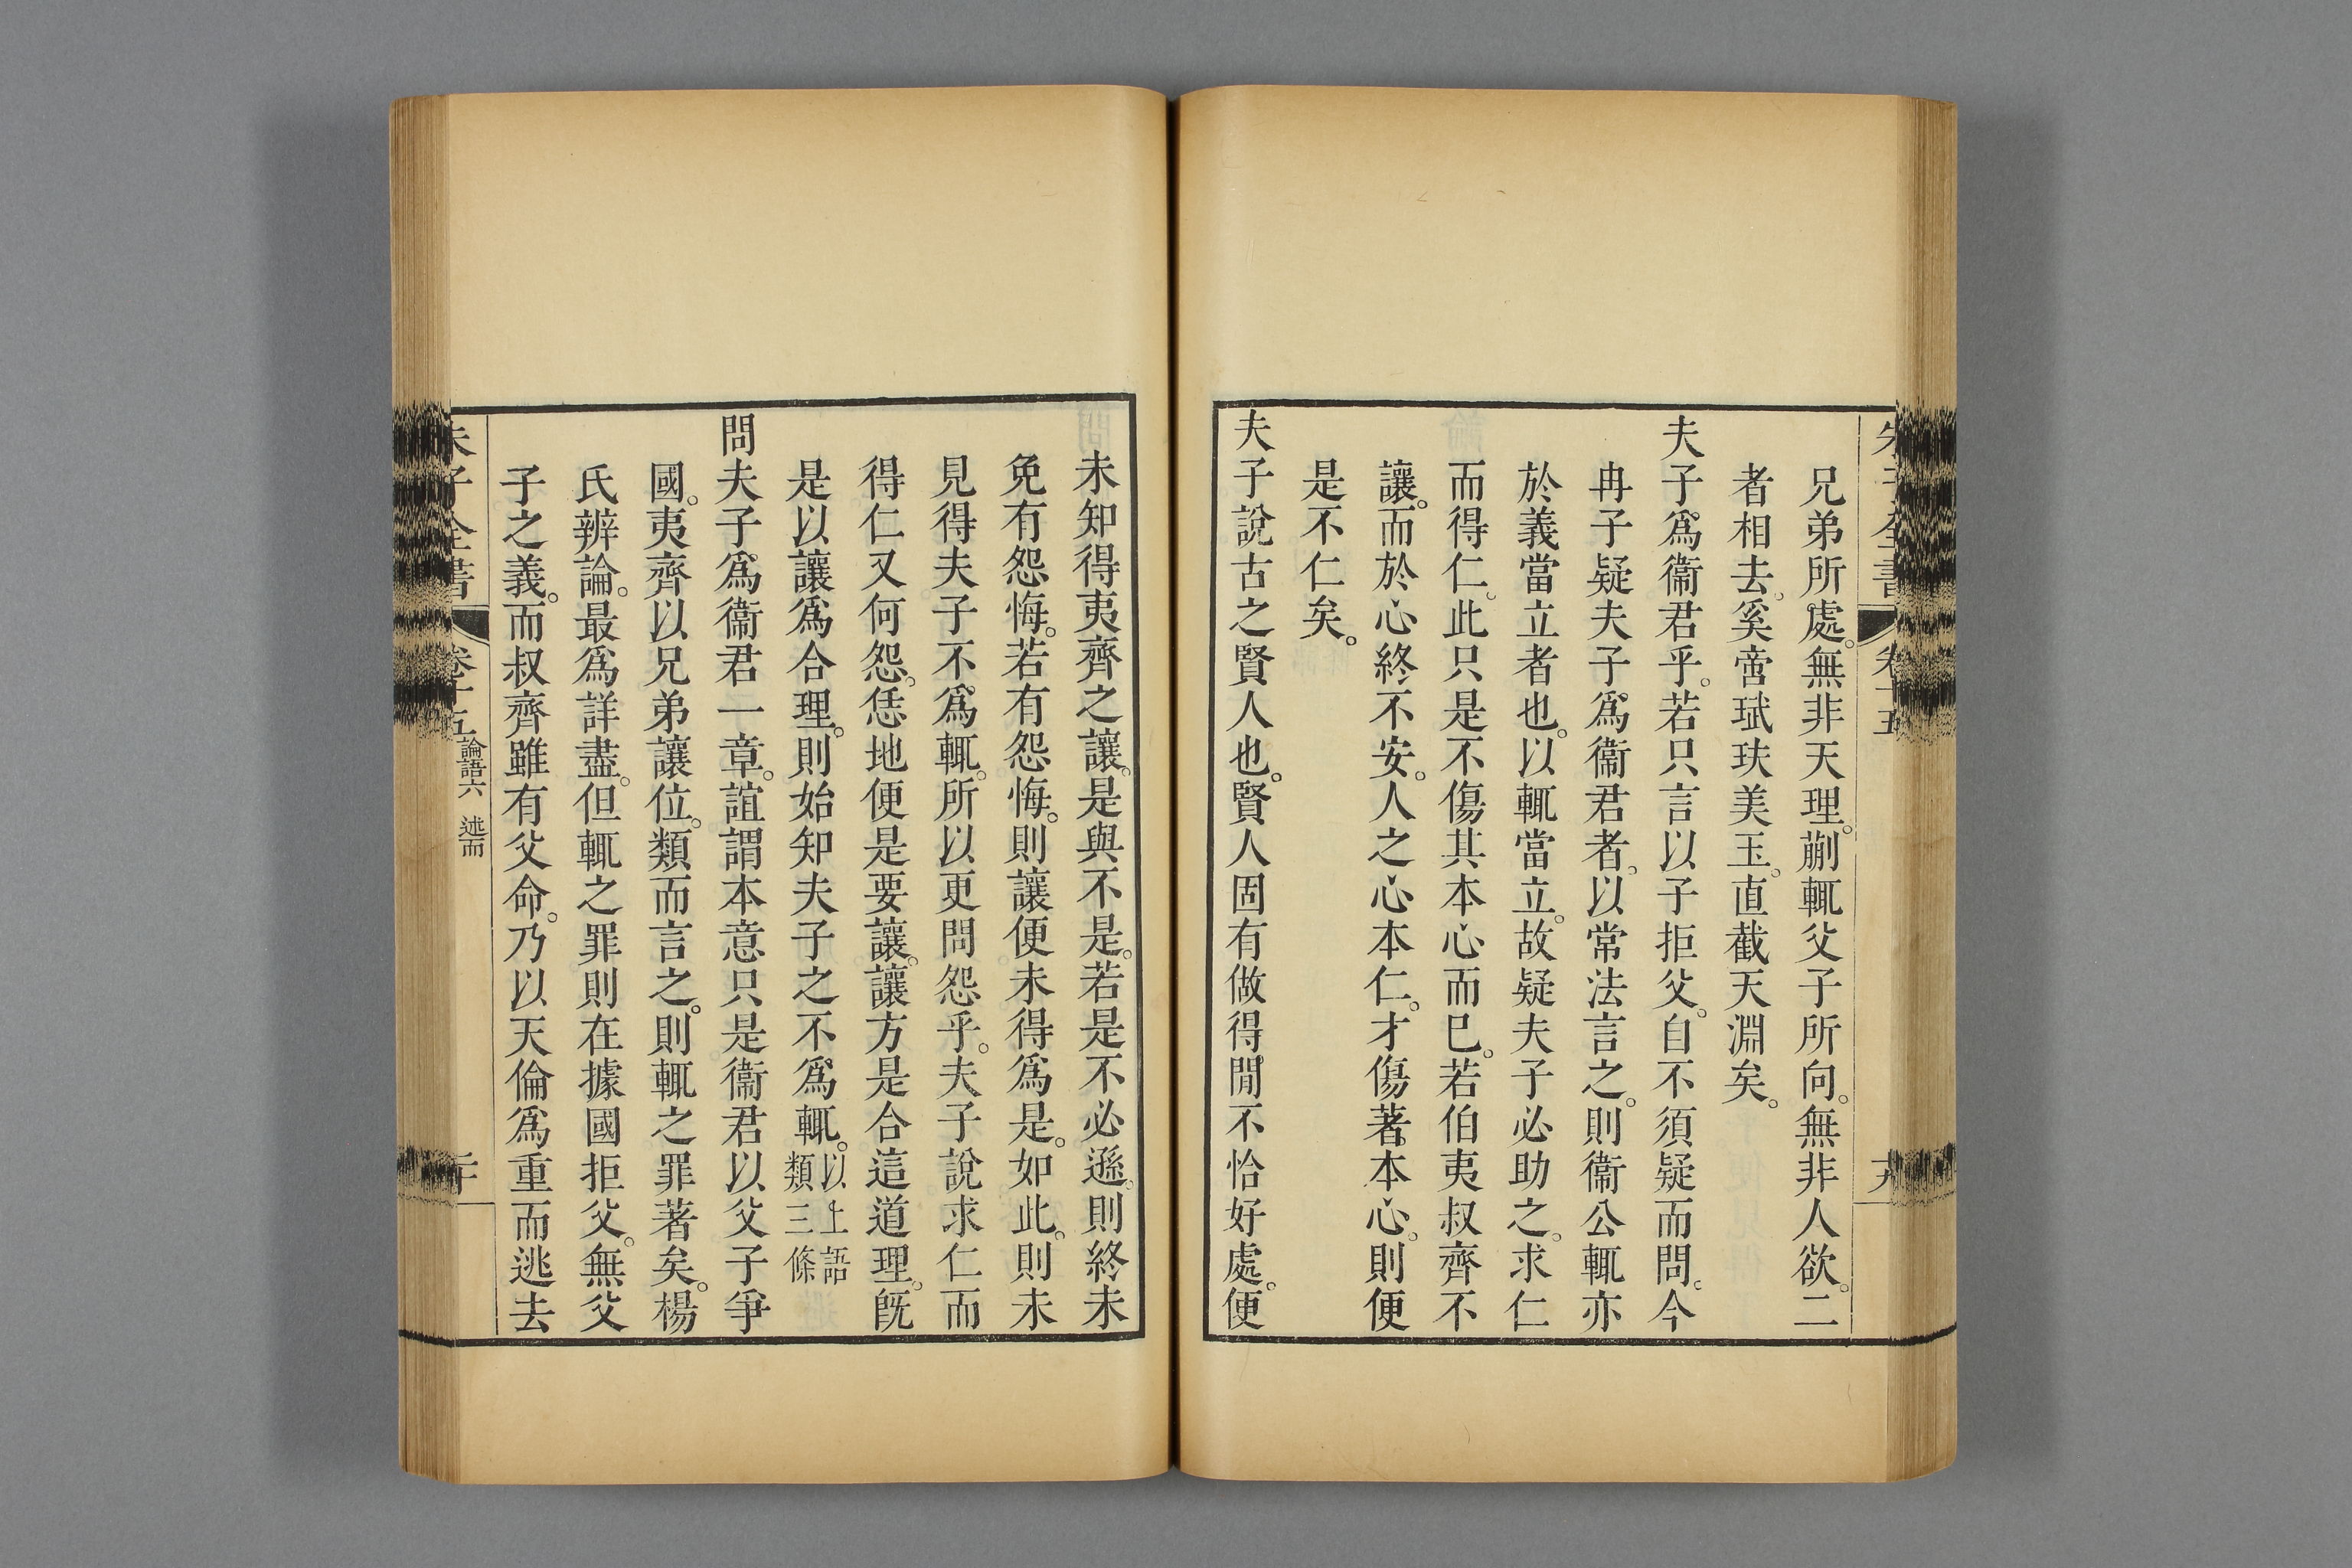 朱子全書 卷十五 十九
兄弟所處。無非天理。蒯輒父子所向。無非人欲。二
者相去。奚啻珷玞美玉。直截天淵矣。
夫子爲衞君乎。若只言以子拒父。自不須疑而問。今
冉子疑夫子爲衞君者。以常法言之。則衞公輒亦
於義當立者也。以輒當立。故疑夫子必助之。求仁
而得仁。此只是不傷其本心而已。若伯夷叔齊不
讓。而於心終不安。人之心本仁。才傷著本心。則便
是不仁矣。
夫子說古之賢人也。賢人固有做得閒不恰好處。便
未知得夷齊之讓。是與不是。若是不必遜。則終未
免有怨悔。若有怨悔。則讓便未得爲是。如此。則未
見得夫子不爲輒。所以更問怨乎。夫子說求仁而
得仁又何怨。恁地便是要讓。讓方是合這道理。旣
是以讓爲合理。則始知夫子之不爲輒。以上語類三條
問夫子爲衞君一章。誼謂本意只是衞君以父子爭
國。夷齊以兄弟讓位。類而言之。則輒之罪著矣。楊
氏辨論。最爲詳盡。但輒之罪則在據國拒父。無父
子之義。而叔齊雖有父命。乃以天倫爲重而逃去
朱子全書 卷十五 論語六 述而 二十